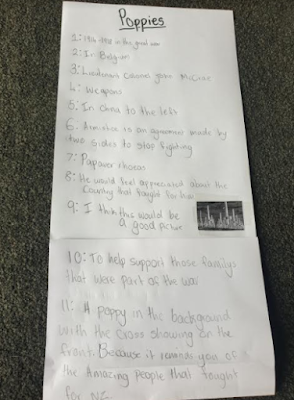 Poppies
1: 1914-1918 in the great war
2: In Belgium
3: Lieutenant Colonel John McCrae
4: Weapons
5: In China to the left
6. Armistice is an agreement made by
two sides to stop fighting
7: Papaver rhoeas
8: He would feel appreciated about the
Country that fought for him
9: I think this would be
a good picture
10: To help support those familys
that were part of the war
11: A poppy in the background
with the cross showing on the
front. Because it reminds you of
the Amazing people that fought
for